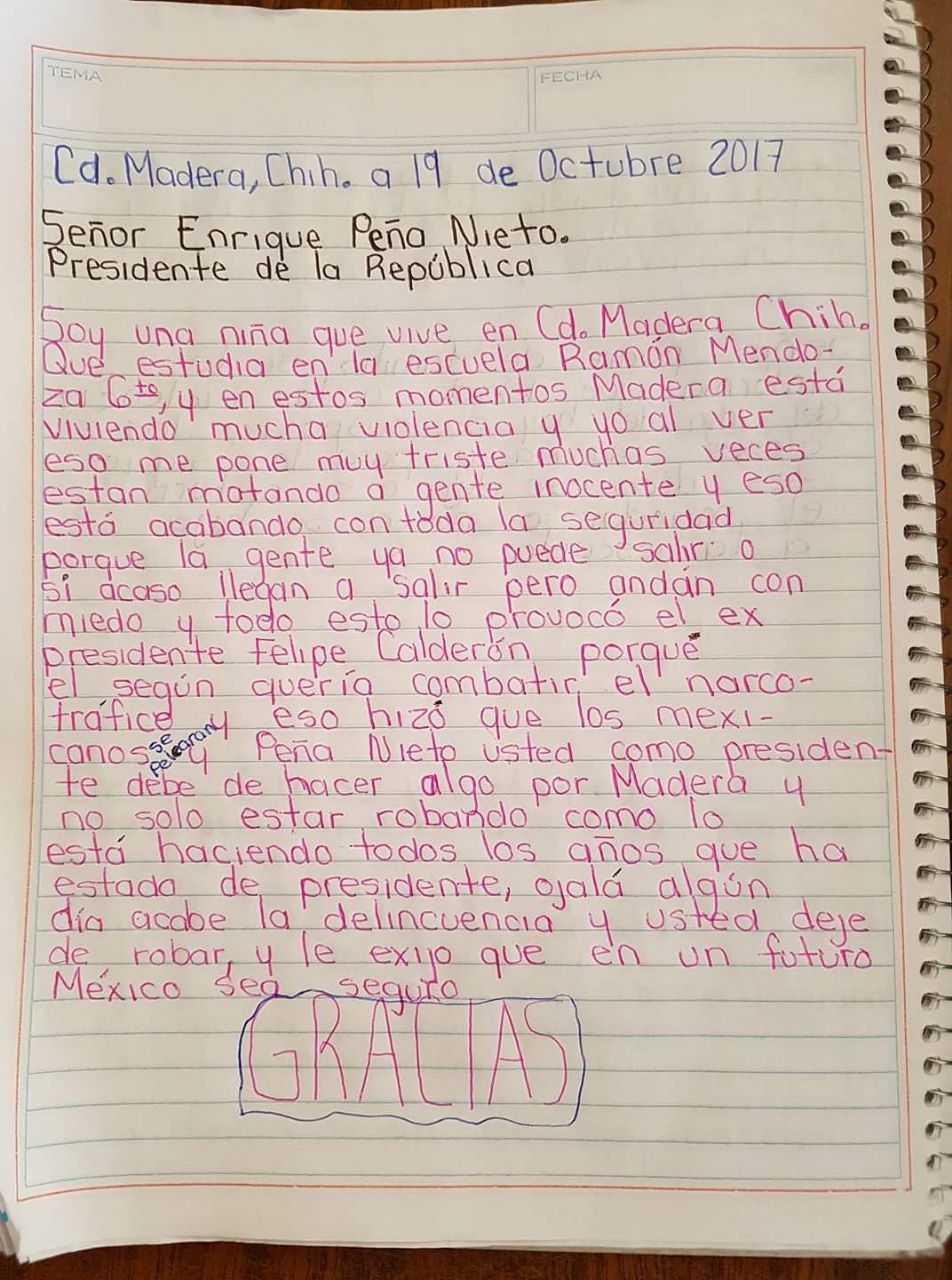 TEMA
FECHA
Cd. Madera, Chih. a 19 de Octubre 2017
Señor Enrique Peña Nieto.
Presidente de la República
Soy una niña que vive en Cd. Madera Chih.
Que estudia en la escuela Ramón Mendo-
za 6to, y en estos momentos Madera está
viviendo mucha violencia y yo al ver
eso me pone muy triste muchas veces
estan matando a gente inocente y eso
está acabando con toda la seguridad
porque la gente ya no puede salir o
si acaso llegan a salir pero andán con
miedo y todo esto lo provocó el ex
presidente Felipe Calderón porque
el según quería combatir el narco-
tráfico y eso hizó que los mexi-
canos se pelearan y Peña Nieto usted como presiden-
te debe de hacer algo por Madera y
no solo estar robando como lo
está haciendo todos los años que ha
estado de presidente, ojalá algún
día acabe la delincuencia y usted deje
de robar, y le exijo que en un futuro
México sea seguro
GRACIAS